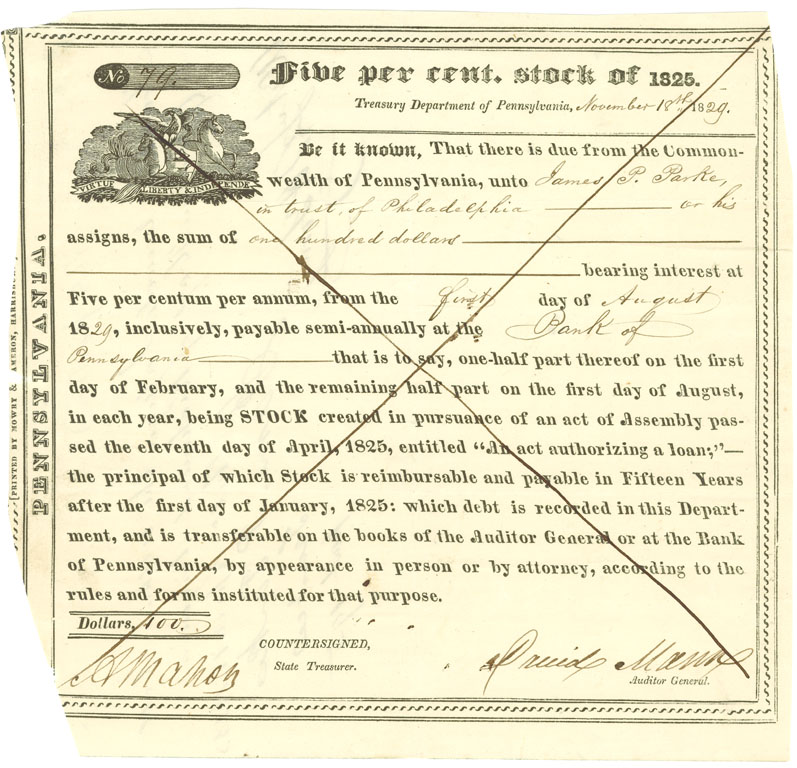 No 79.
Five per cent. stock of 1825.
Treasury Department of Pennsylvania, November 18th 1829.
VIRTUE LIBERTY & INDEPENDE
Be it known, That there is due from the Common-
wealth of Pennsylvania, unto James P. Parke,
in trust, of Philadelphia or his
assigns, the sum of one hundred dollars
bearing interest at
Five per centum per annum, from the first day of August
1829, inclusively, payable semi-annually at the Bank of
Pennsylvania that is to say, one-half part thereof on the first
day of February, and the remaining half part on the first day of August,
in each year, being STOCK created in pursuance of an act of Assembly pas-
sed the eleventh day of April, 1825, entitled "An act authorizing a loan;"—
the principal of which Stock is reimbursable and payable in Fifteen Years
after the first day of January, 1825: which debt is recorded in this Depart-
ment, and is transferable on the books of the Auditor General or at the Bank
of Pennsylvania, by appearance in person or by attorney, according to the
rules and forms instituted for that purpose.
Dollars, 100.
COUNTERSIGNED,
A Mahon State Treasurer.
David Mann
Auditor General.
PENNSYLVANIA.
[PRINTED BY MOWRY & AMERON, HARRISBU